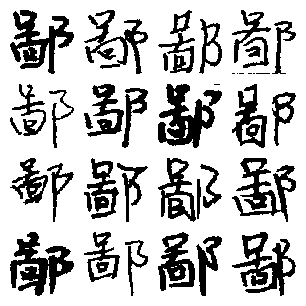 鄙鄙鄙鄙
鄙鄙鄙鄙
鄙鄙鄙鄙
鄙鄙鄙鄙